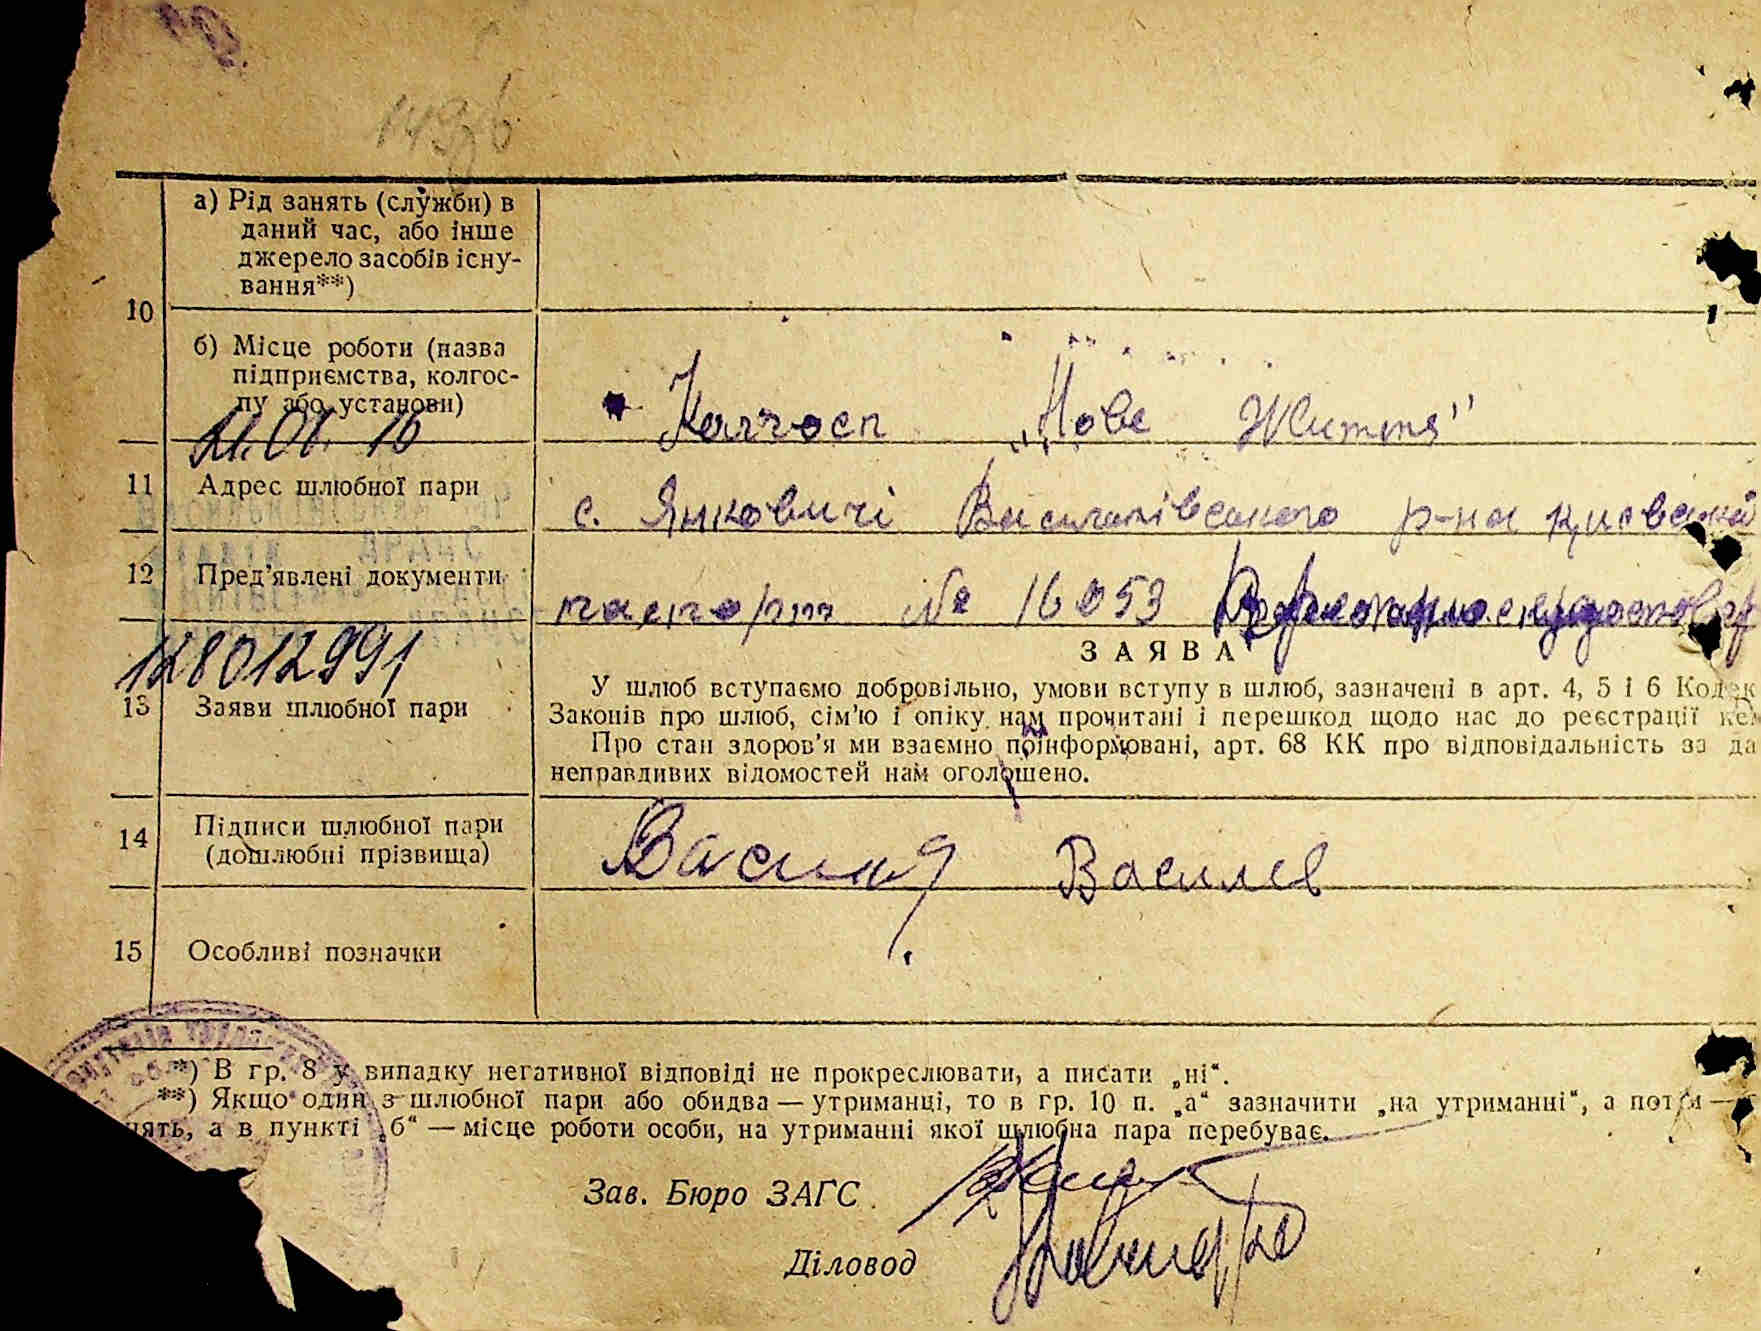 1496
10
а) Рід занять (служби) в
даний час, або інше
джерело засобів існу-
вання**)
б) Місце роботи (назва
підприємства, колгос-
пу або установи)
Колгосп „Нове Життя"
21.01.16
11
Адрес шлюбної пари
с. Янковичі Васильківського р-на Київської
12
Пред’явлені документи
паспорт № 16053
128012991
13
Заяви шлюбної пари
ЗАЯВА
У шлюб вступаємо добровільно, умови вступу в шлюб, зазначені в арт. 4, 5 і 6 Кодек
Законів про шлюб, сім’ю і опіку нам прочитані і перешкод щодо нас до реєстрації нем
Про стан здоров’я ми взаємно поінформовані, арт. 68 КК про відповідальність за да
неправдивих відомостей нам оголошено.
14
Підписи шлюбної пари
(дошлюбні прізвища)
Василев
15
Особливі позначки
*) В гр. 8 у випадку негативної відповіді не прокреслювати, а писати „ні“.
**) Якщо один з шлюбної пари або обидва — утриманці, то в гр. 10 п. „а“ зазначити „на утриманні“, а потім —
нять, а в пункті „б“ — місце роботи особи, на утриманні якої шлюбна пара перебуває.
Зав. Бюро ЗАГС
Діловод